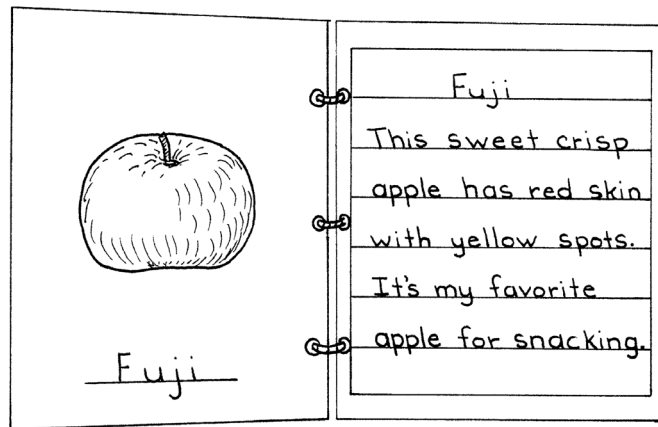 Fuji
Fuji
This sweet crisp
apple has red skin
with yellow spots.
It's my favorite
apple for snacking.